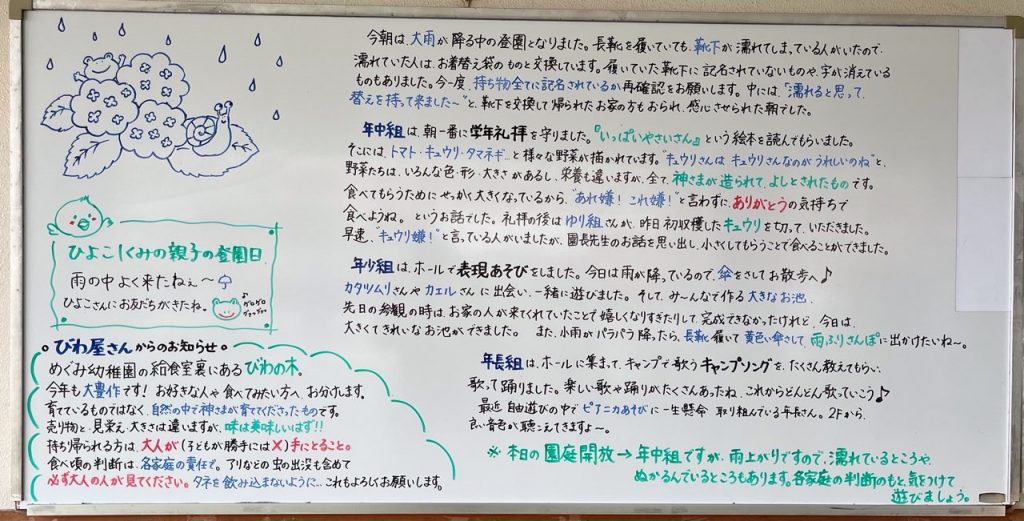 今朝は、大雨が降る中の登園となりました。長靴を履いていても、靴下が濡れてしまっている人がいたので、
濡れていた人は、お着替え袋のものと交換しています。履いていた靴下に記名されていないものや、字が消えている
ものもありました。今一度、持ち物全てに記名されているか再確認をお願いします。中には、"濡れると思って、
替えを持って来ました〜"と、靴下を交換して帰られたお家の方もおられ、感心させられた朝でした。
年中組は、朝一番に学年礼拝を守りました。『いっぱいやさいさん』という絵本を読んでもらいました。
そこには、トマト・キュウリ・タマネギ…と様々な野菜が描かれています。"キュウリさんは キュウリさんなのがうれしいのね"と、
野菜たちは、いろんな色・形・大きさがあるし、栄養も違いますが、全て、神さまが造られて、よしとされたものです。
食べてもらうために せっかく大きくなっているから、"あれ嫌！これ嫌！"と言わずに、ありがとうの気持ちで
食べようね。というお話でした。礼拝の後は ゆり組さんが、昨日 初収穫した キュウリを切って、いただきました。
早速、"キュウリ嫌！"と言っている人がいましたが、園長先生のお話を思い出し、小さくしてもらうことで食べることができました。
年少組は、ホールで表現あそびをしました。今日は雨が降っているので、傘をさしてお散歩へ♪
カタツムリさんや カエルさんに出会い、一緒に遊びました。そして、み〜んなで作る 大きなお池、
先日の参観の時は、お家の人が来てくれていたことで 嬉しくなりすぎたりして、完成できなかったけれど、今日は、
大きくてきれいなお池ができました。 また、小雨がパラパラ降ったら、長靴履いて 黄色い傘さして、雨ふりさんぽに出かけたいね〜。
年長組は、ホールに集まって、キャンプで歌うキャンプソングを、たくさん教えてもらい、
歌って踊りました。楽しい歌や踊りがたくさんあったね、これからどんどん歌っていこう♪
最近、自由遊びの中で ピアニカあそびに 一生懸命 取り組んでいる年長さん。2Fから、
良い音色が聴こえてきますよ〜。
※ 本日の園庭開放→年中組ですが、雨上がりですので、濡れているところや、
ぬかるんでいるところもあります。各家庭の判断のもと、気をつけて
遊びましょう。
ひよこ1くみの親子の登園日
雨の中 よく来たねぇ〜
ひよこさんにお友だちができたね。
♪ゲロゲロ
グァッグァッ
びわ屋さんからのお知らせ
めぐみ幼稚園の給食室裏にあるびわの木。
今年も大豊作です！ お好きな人や食べてみたい方へ、お分けします。
育てているものではなく、自然の中で神さまが育ててくださったものです。
売り物と、見栄え・大きさは違いますが、味は美味しいはず!!
持ち帰られる方は、大人が(子どもが勝手には×)手にとること。
食べ頃の判断は、各家庭の責任で。アリなどの虫の出没も含めて
必ず大人の人が見てください。タネを飲み込まないように…これもよろしくお願いします。